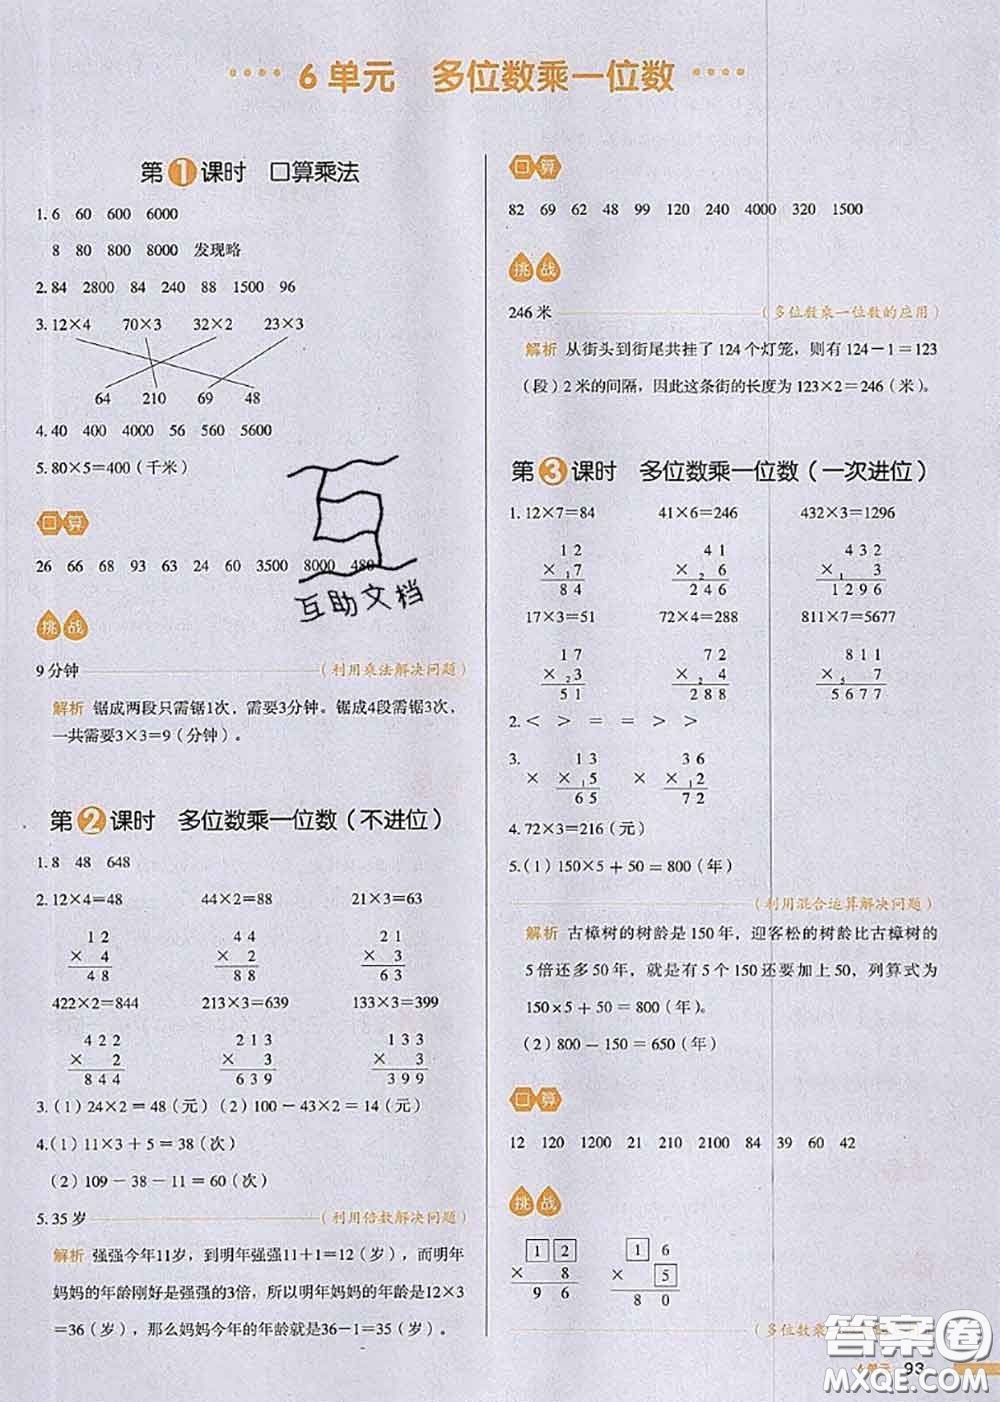 6单元 多位数乘一位数
第1课时 口算乘法
1. 6 60 600 6000
8 80 800 8000 发现略
2. 84 2800 84 240 88 1500 96
3. 12×4 70×3 32×2 23×3
64 210 69 48
4. 40 400 4000 56 560 5600
5. 80×5=400（千米）
口算
26 66 68 93 63 24 60 3500 8000 480
挑战
9分钟（利用乘法解决问题）
解析 锯成两段只需锯1次，需要3分钟。锯成4段需锯3次，
一共需要3×3=9（分钟）。
第2课时 多位数乘一位数（不进位）
1. 8 48 648
2. 12×4=48 44×2=88 21×3=63
1 2 4 4 2 1
× 4 × 2 × 3
4 8 8 8 6 3
422×2=844 213×3=639 133×3=399
4 2 2 2 1 3 1 3 3
× 2 × 3 × 3
8 4 4 6 3 9 3 9 9
3.（1）24×2=48（元）（2）100－43×2=14（元）
4.（1）11×3＋5=38（次）
（2）109－38－11=60（次）
5. 35岁（利用倍数解决问题）
解析 强强今年11岁，到明年强强11＋1=12（岁），而明年
妈妈的年龄刚好是强强的3倍，所以明年妈妈的年龄是12×3
=36（岁），那么妈妈今年的年龄就是36－1=35（岁）。
口算
82 69 62 48 99 120 240 4000 320 1500
挑战
246米（多位数乘一位数的应用）
解析 从街头到街尾共挂了124个灯笼，则有124－1=123
（段）2米的间隔，因此这条街的长度为123×2=246（米）。
第3课时 多位数乘一位数（一次进位）
1. 12×7=84 41×6=246 432×3=1296
1 2 4 1 4 3 2
× 1 7 × 2 6 × 3
8 4 2 4 6 1 2 9 6
17×3=51 72×4=288 811×7=5677
1 7 7 2 8 1 1
× 2 3 × 2 4 × 5 7
5 1 2 8 8 5 6 7 7
2. ＜ ＞ = = ＞ ＞
3. 1 3 3 6
× × 1 5 × × 1 2
6 5 7 2
4. 72×3=216（元）
5.（1）150×5＋50=800（年）
（利用混合运算解决问题）
解析 古樟树的树龄是150年，迎客松的树龄比古樟树的
5倍还多50年，就是有5个150还要加上50，列算式为
150×5＋50=800（年）。
（2）800－150=650（年）
口算
12 120 1200 21 210 2100 84 39 60 42
挑战
1 2 1 6
× 8 × 5
9 6 8 0
（多位数乘一位数
6单元 93
互助文档
答案圈
MXQE.COM